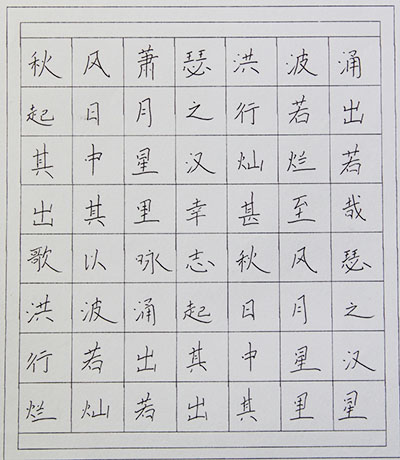 秋风萧瑟洪波涌
起日月之行若出
其中星汉灿烂若
出其里幸甚至哉
歌以咏志秋风瑟
洪波涌起日月之
行若出其中星汉
烂灿若出其里星